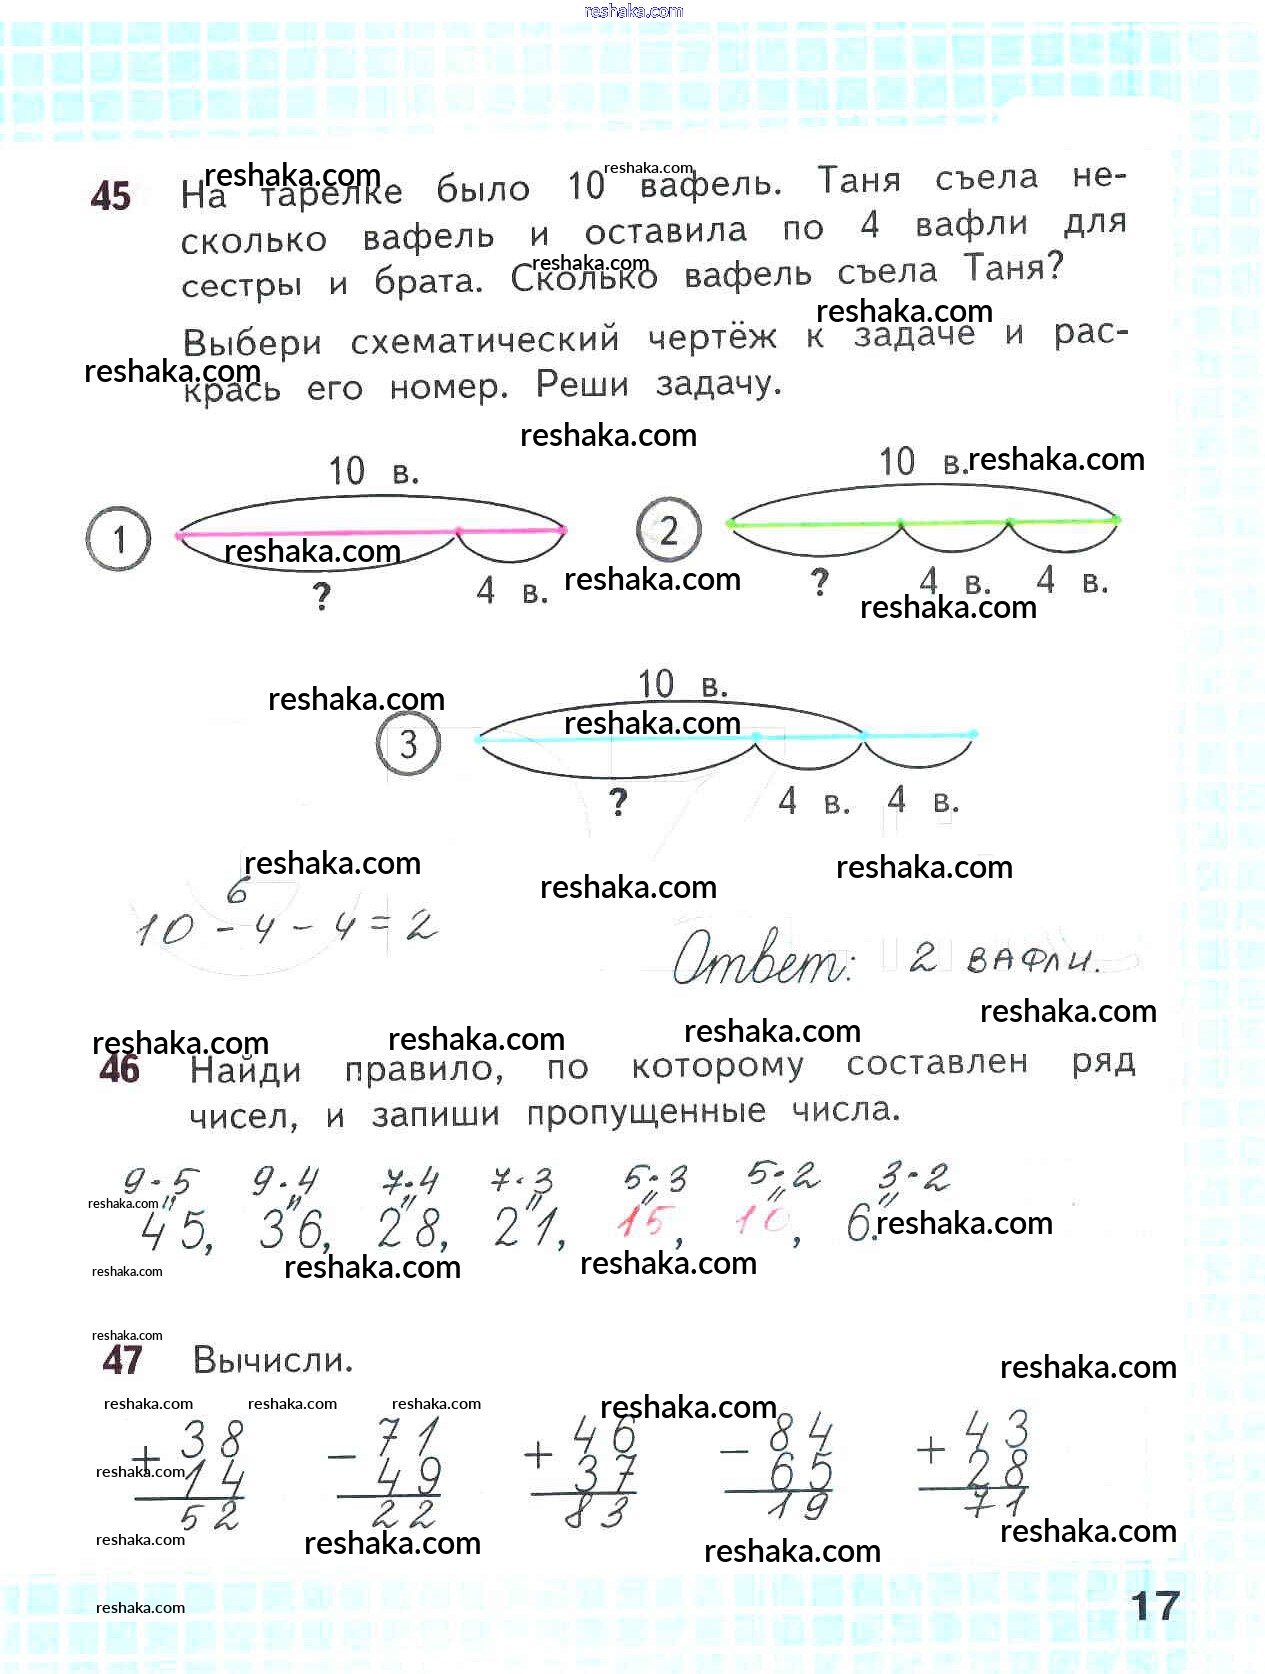 reshaka.com
45 На тарелке было 10 вафель. Таня съела не-
сколько вафель и оставила по 4 вафли для
сестры и брата. Сколько вафель съела Таня?
Выбери схематический чертёж к задаче и рас-
крась его номер. Реши задачу.
10 в. 10 в.
1 2
? 4 в. ? 4 в. 4 в.
10 в.
3
? 4 в. 4 в.
6
10 - 4 - 4 = 2
Ответ: 2 вафли.
46 Найди правило, по которому составлен ряд
чисел, и запиши пропущенные числа.
9·5 9·4 7·4 7·3 5·3 5·2 3·2
45, 36, 28, 21, 15, 10, 6.
47 Вычисли.
+ 38 - 71 + 46 - 84 + 43
14 49 37 65 28
52 22 83 19 71
17